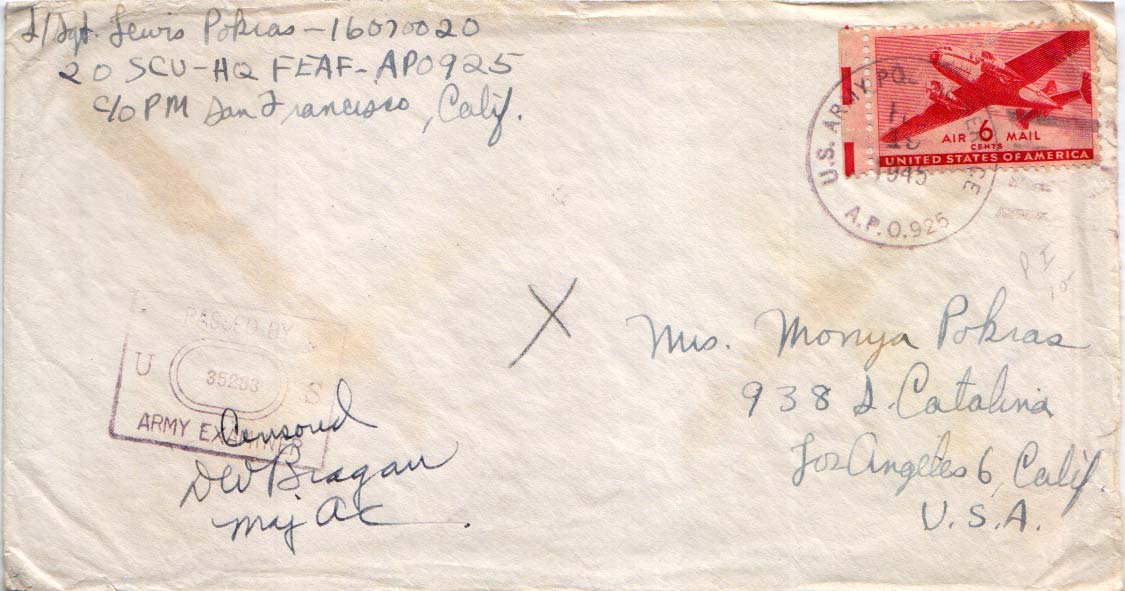 T/Sgt. Lewis Pokras - 16070020
20 SCU - HQ FEAF - APO 925
c/o PM San Francisco, Calif.
U.S. ARMY PO
1945
A.P.O. 925
AIR 6 MAIL
CENTS
UNITED STATES OF AMERICA
P I
10
X
Mrs. Monya Pokras
938 S. Catalina
Los Angeles 6, Calif.
U.S.A.
PASSED BY
U 35283 S
ARMY EXAMINER
Censored
DW Bragan
Maj AC